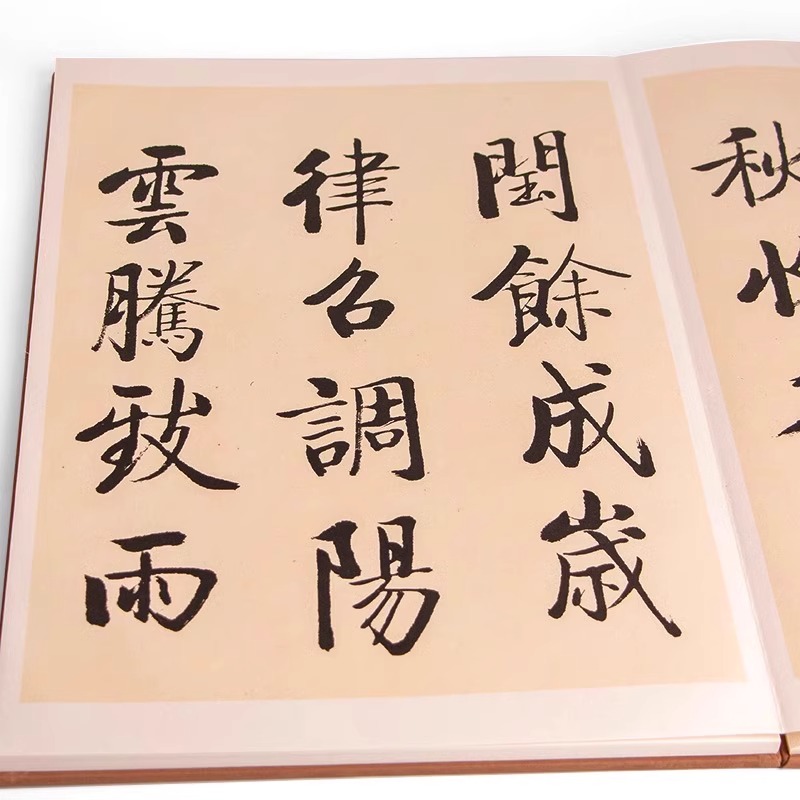 秋
閏餘成歲
律召調陽
雲騰致雨